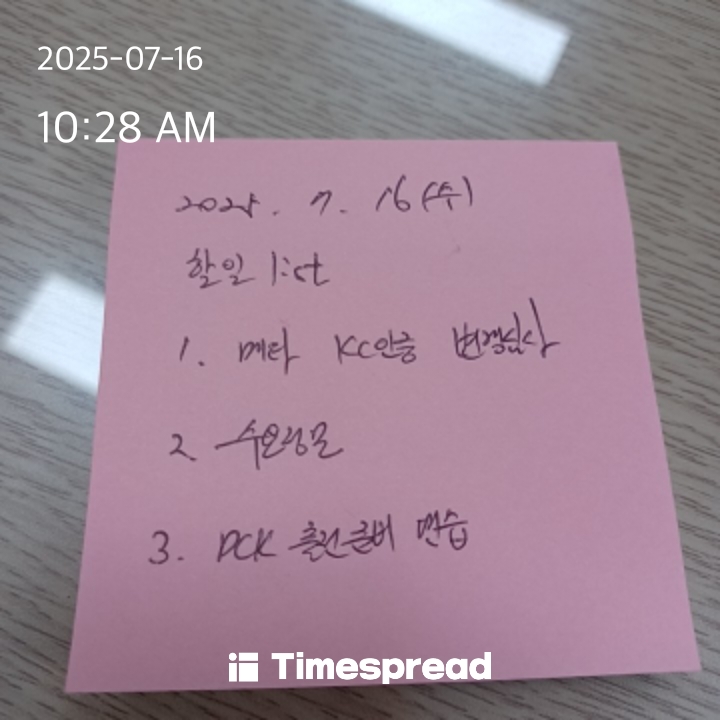 2025-07-16
10:28 AM
2025. 7. 16(수)
할일 list
1. 메타 KC인증 변경심사
2. 수요
3. PCK 출전 연습
Timespread